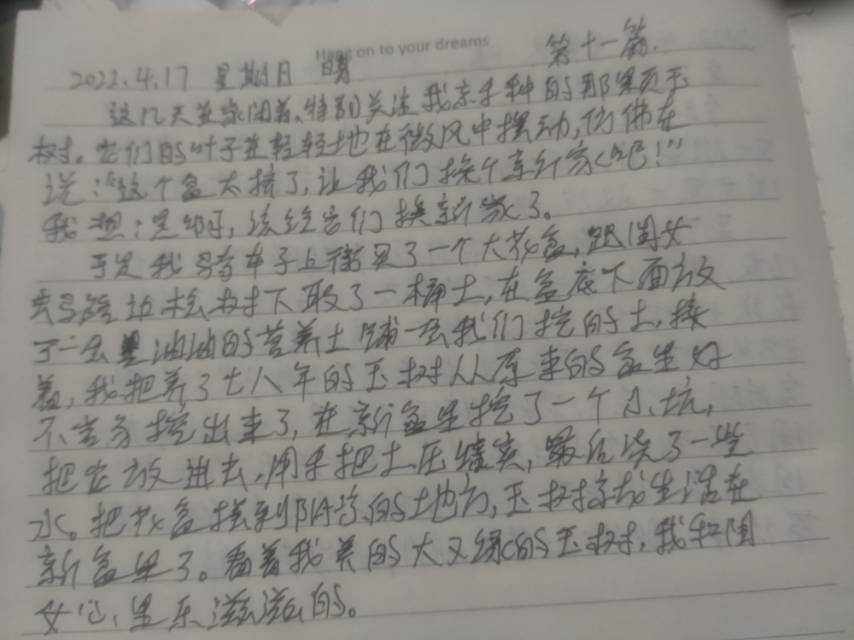 Hang on to your dreams
2022.4.17 星期日 晴 第十一篇.
这几天在家闲着,特别关注我亲手种的那棵玉
树。它们的叶子在轻轻地在微风中摆动,仿佛在
说:“这个盆太挤了,让我们换个新家吧!”
我想:是啊,该给它们换新家了。
于是我骑着车子上街买了一个大花盆,跟闺女
去马路边松树下取了一桶土,在盆底下面放
了一层黑油油的营养土铺一层我们挖的土,接
着,我把养了七八年的玉树从原来的盆里好
不容易挖出来了,在新盆里挖了一个小坑,
把它放进去,用手把土压结实,最后浇了一些
水。把花盆搬到阴凉的地方,玉树就生活在
新盆里了。看着我养的大又绿的玉树,我和闺
女心里乐滋滋的。